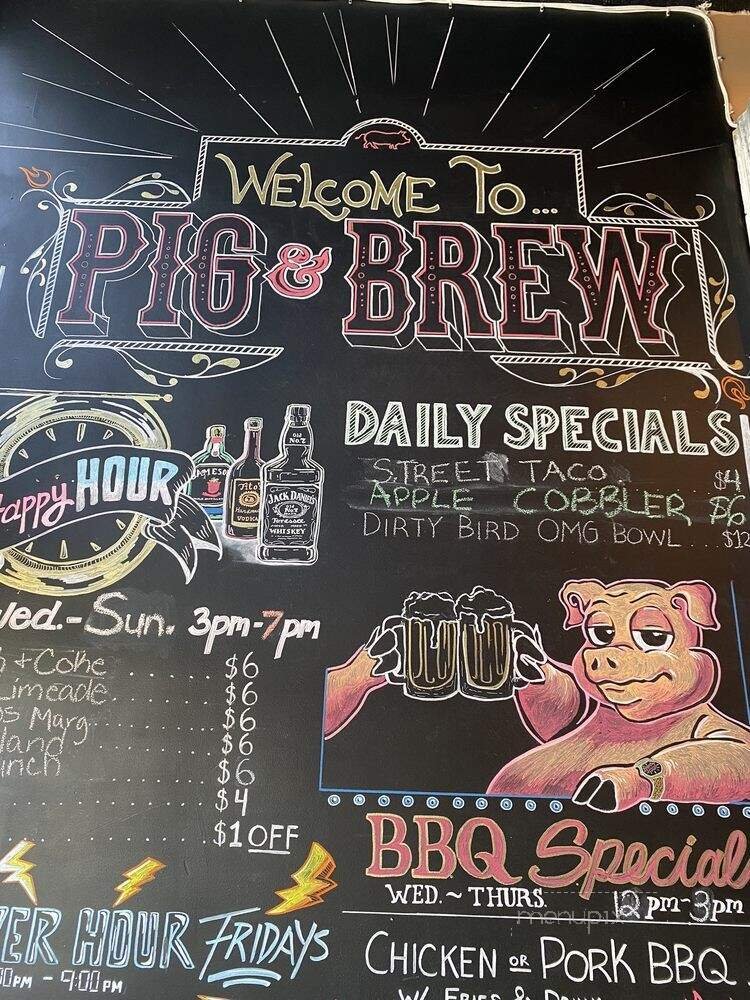 WELCOME TO...
PIG & BREW
Happy HOUR
JAMESO
Tito's
VODKA
OLD
No.7
JACK DANIEL'S
Old
No.7
Tennessee
WHISKEY
Wed.-Sun. 3pm-7pm
+Coke $6
Limeade $6
Marg $6
land $6
unch $6
$4
$1 OFF
DAILY SPECIALS
STREET TACO $4
APPLE COBBLER $6
DIRTY BIRD OMG BOWL....$12
BBQ Special
WED. ~ THURS. 12pm-3pm
menupix
CHICKEN OR PORK BBQ
W/ FRIES &
ER HOUR FRIDAYS
PM - 9:00PM